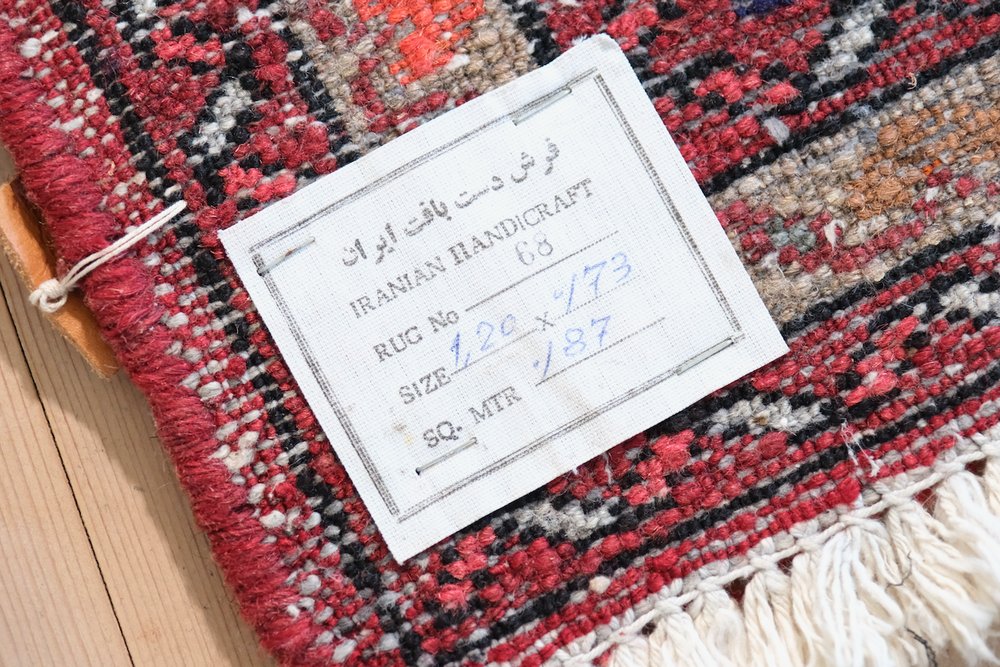 فرش دست بافت ایران
IRANIAN HANDICRAFT
RUG No 68
SIZE 1,20 x /73
SQ. MTR /87